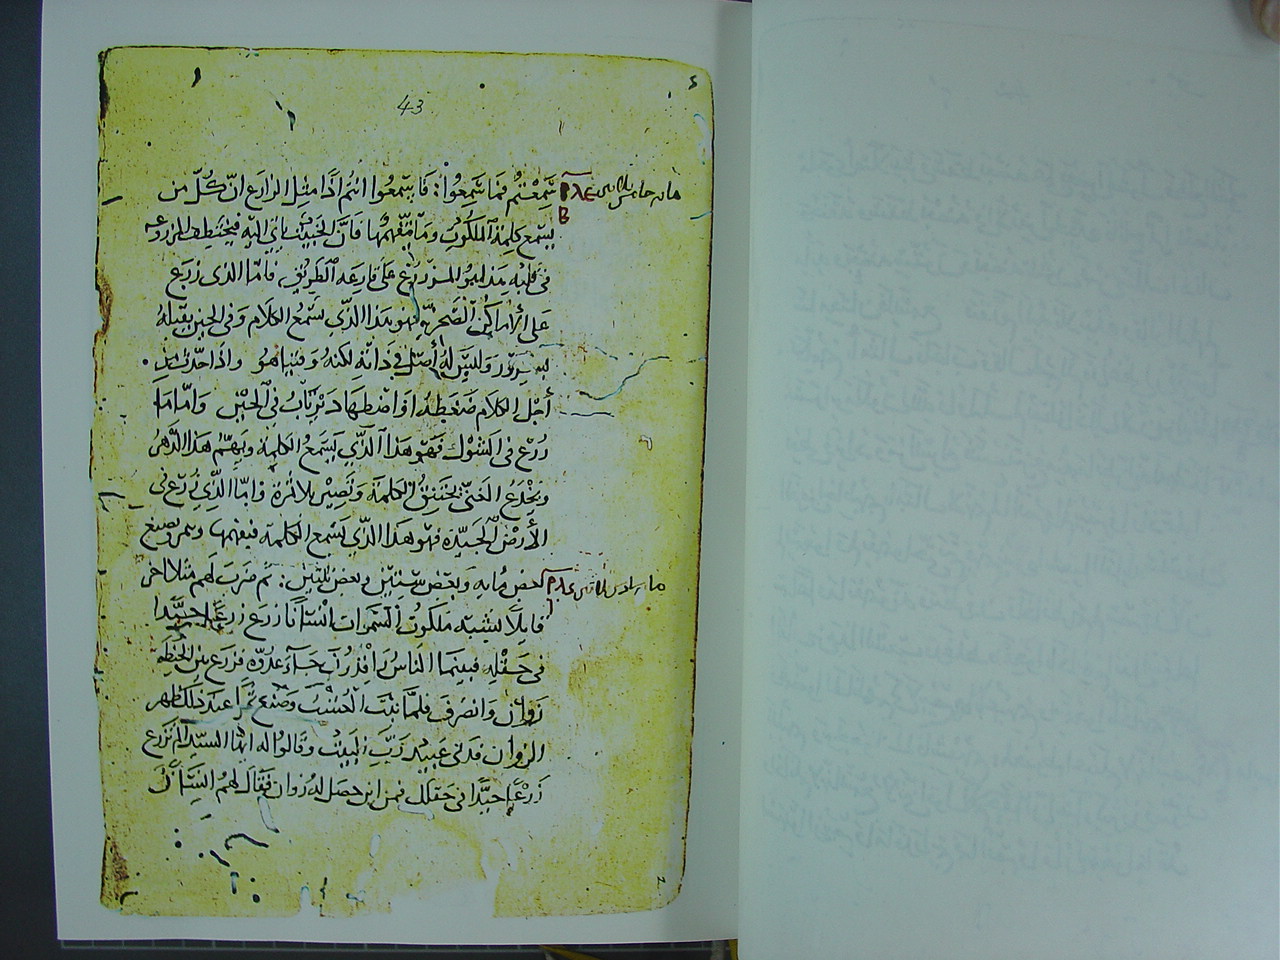 43
سَمِعْتُم فمَا سَمعُوا: فَاسْمعُوا انتُم اذًا مثل الزارع انّ كُلّ من
يسْمع كلمة الملكُوت ومَا يتفهّمُها فَانَّ الخبيث ياتي اليه فيختطف المزروعه
في قلبه هَذا هو المزروع عَلى قارعه الطَريق فامّا الذى زرع
عَلى الأمَاكن الصَخرية فهو هذا الذّي سَمعُ الكلام وفى الحين يقبلهُ
بسرُور وَليسَ لهُ أصل في ذاته لكنهُ وقتيا هو واذا حدث من
أجل الكلام ضَغطه او اضطهاد يَرتابُ في الحين وَامّا مَا
زُرع فى الشوك فهو هَذا الّذي يَسمَع الكلمة وبهمّ هذا الدَهر
ويخدَعُ الغنى تختنق الكلمة وتصير بلا ثمرة فامّا الذّي زرع فى
الأرض الجَيّدة فهو هَذا الذّي يسْمع الكلمة فيفهمها ويثمر ويصنع
بعض مايه وبعض ستين وبعض ثلثين: ثم ضرَبَ لهم مثلا اخر
قايلًا يشبه ملكوت السَموات انسَانًا زرَعَ زرعًا جيّدا
فى حَقله فبينمَا النَاسُ رَاقدُون جَآء عدُوّه فزرعَ بين الحنطه
زوان وَانصَرفَ فلمّا نبَت العُشبُ وصَنع ثمرًا عند ذلك ظهر
الزوان فدنى عَبيد رَبّ البيتْ وقالوا له ايها السيّد الم تَزرع
زَرعًا جيّدا فى حقلك فمن اين حصَل له زوان فقال لهُم انسَانٌ